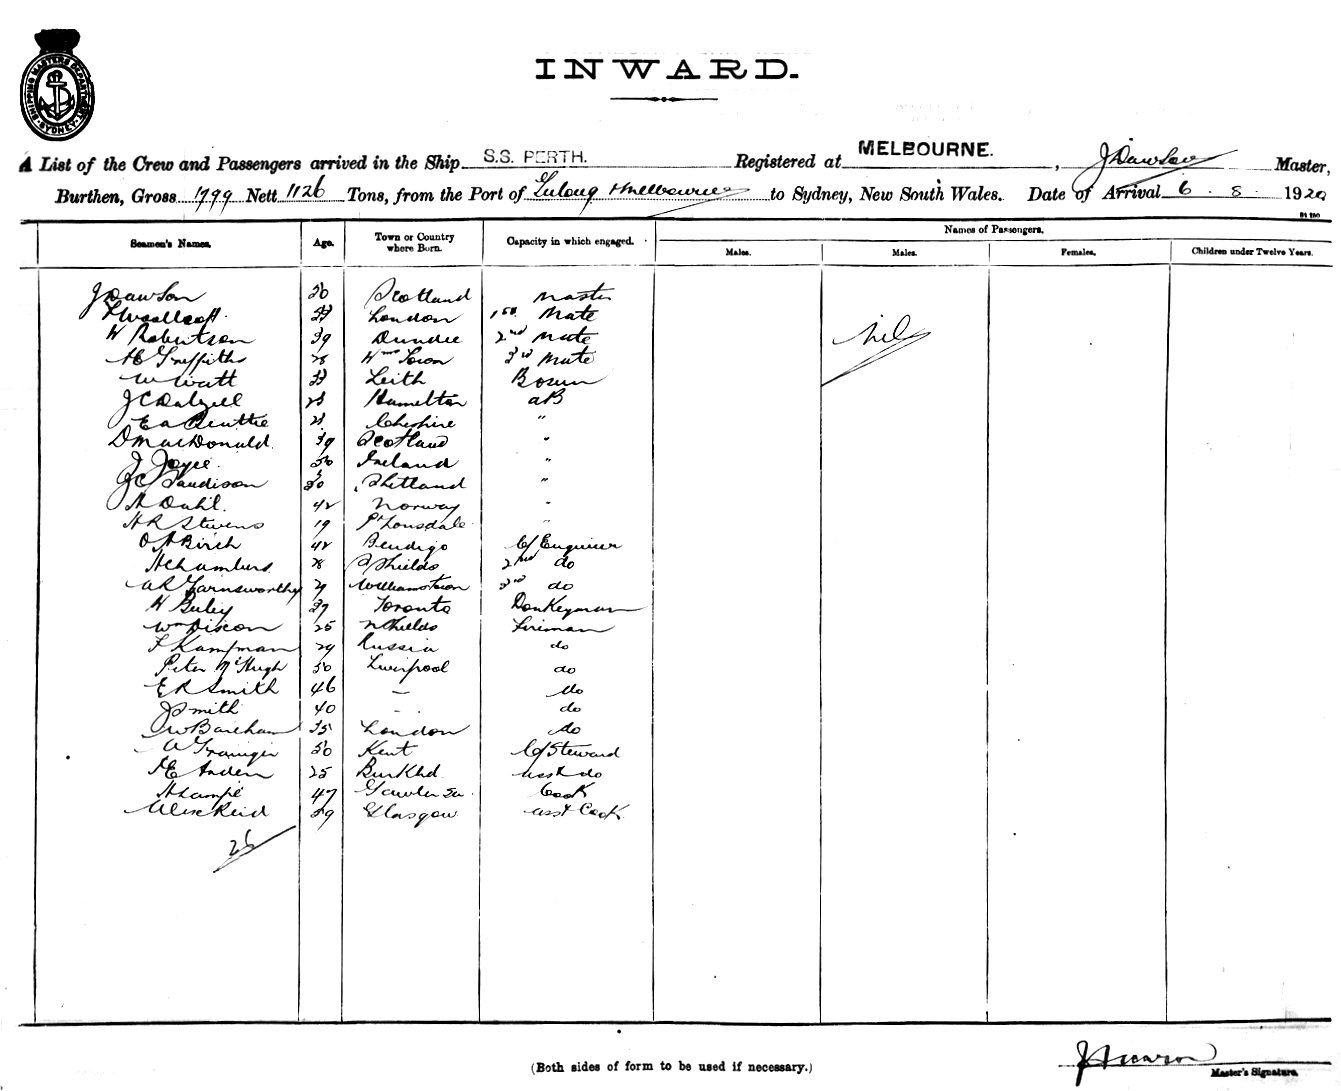 SHIPPING MASTERS DEPARTMENT SYDNEY
INWARD.
A List of the Crew and Passengers arrived in the Ship S.S. PERTH. Registered at MELBOURNE. , J Dawson Master,
Burthen, Gross 1799 Nett 1126 Tons, from the Port of Melbourne to Sydney, New South Wales. Date of Arrival 6 . 8 1920
Seamen's Names. Age. Town or Country where Born. Capacity in which engaged. Names of Passengers.
Males. Males. Females. Children under Twelve Years.
J Dawson Scotland Master
London 1st Mate
H Robertson 39 Dundee 2nd Mate
H E Griffiths 28 Wms Town 3rd Mate
Nil
W Watt Leith Bosun
J C Dalziell Hamilton AB
E A Beattie Cheshire "
D MacDonald 39 Scotland "
J Joyce Ireland "
J C Sandison 30 Shetland "
H Dahl. 42 Norway "
H R Stevens 19 Pt Lonsdale "
O H Birch 42 Bendigo C/ Engineer
H Chambers 28 S Shields 2nd do
A R Farnsworthy 29 Williamstown 3rd do
H 37 Toronto Donkeyman
Wm Dixon 25 N Shields Fireman
F Kampman 29 Russia do
Peter McHugh 50 Liverpool do
E R Smith 46 — do
J Smith 40 — do
W Bareham 35 London do
A Grainger 50 Kent C/ Steward
H E Arden 25 Burkhd Asst do
H Lampe 47 Gawler SA. Cook
Alex Reid 59 Glasgow Asst Cook
26
(Both sides of form to be used if necessary.)
Master's Signature.